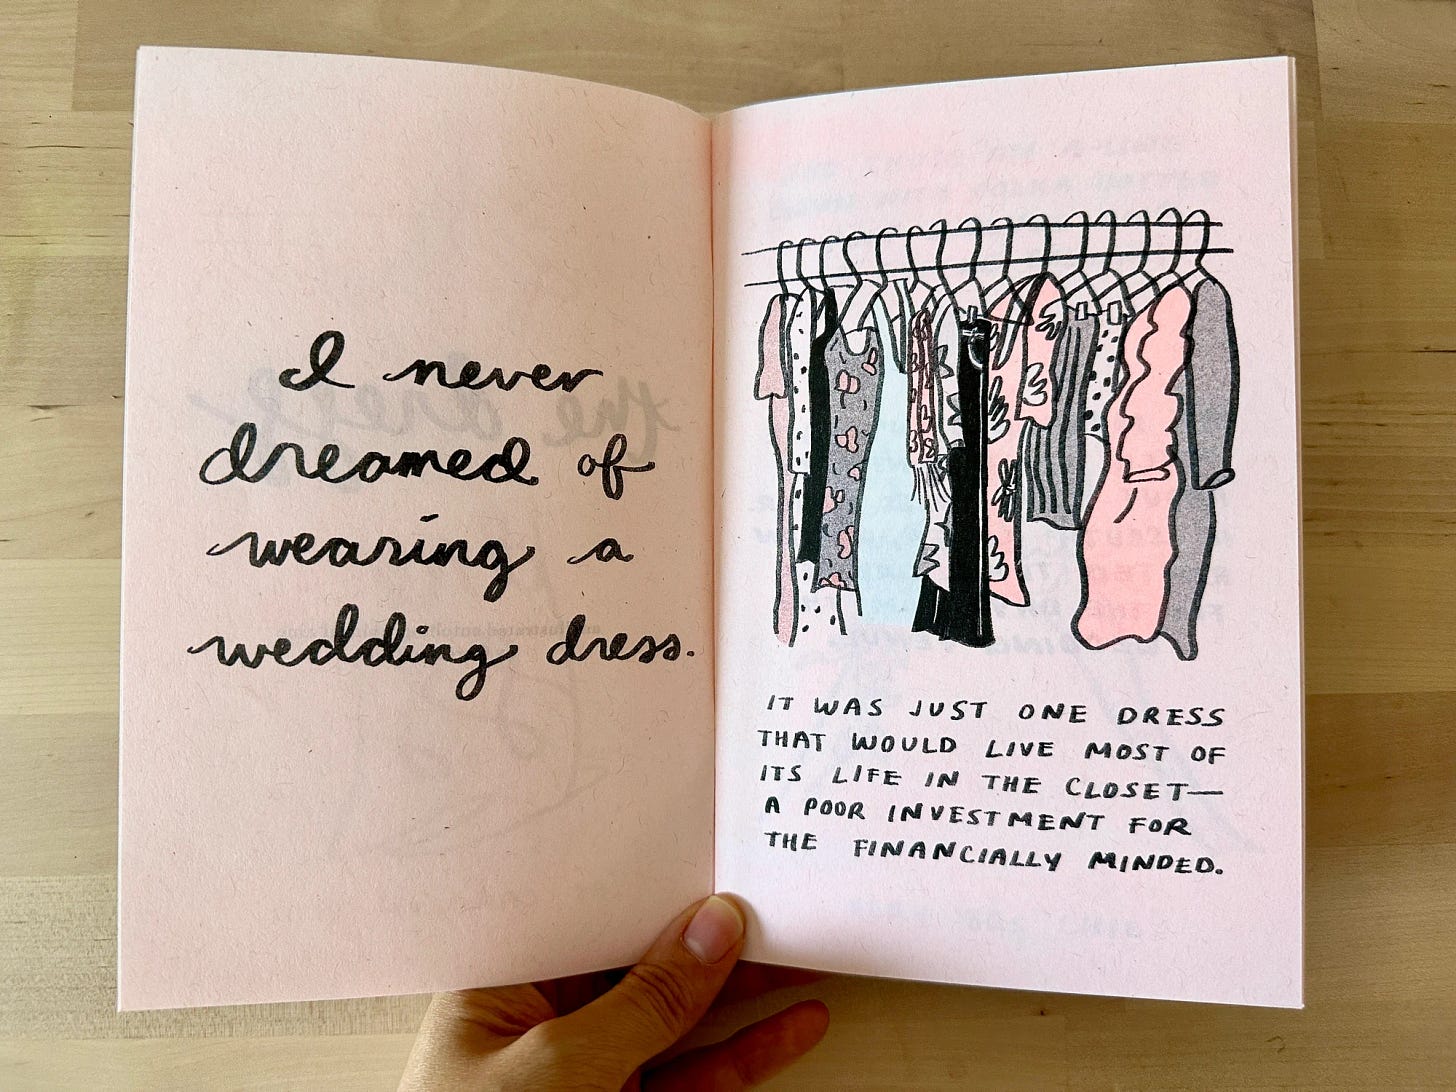 I never
dreamed of
wearing a
wedding dress.
IT WAS JUST ONE DRESS
THAT WOULD LIVE MOST OF
ITS LIFE IN THE CLOSET—
A POOR INVESTMENT FOR
THE FINANCIALLY MINDED.